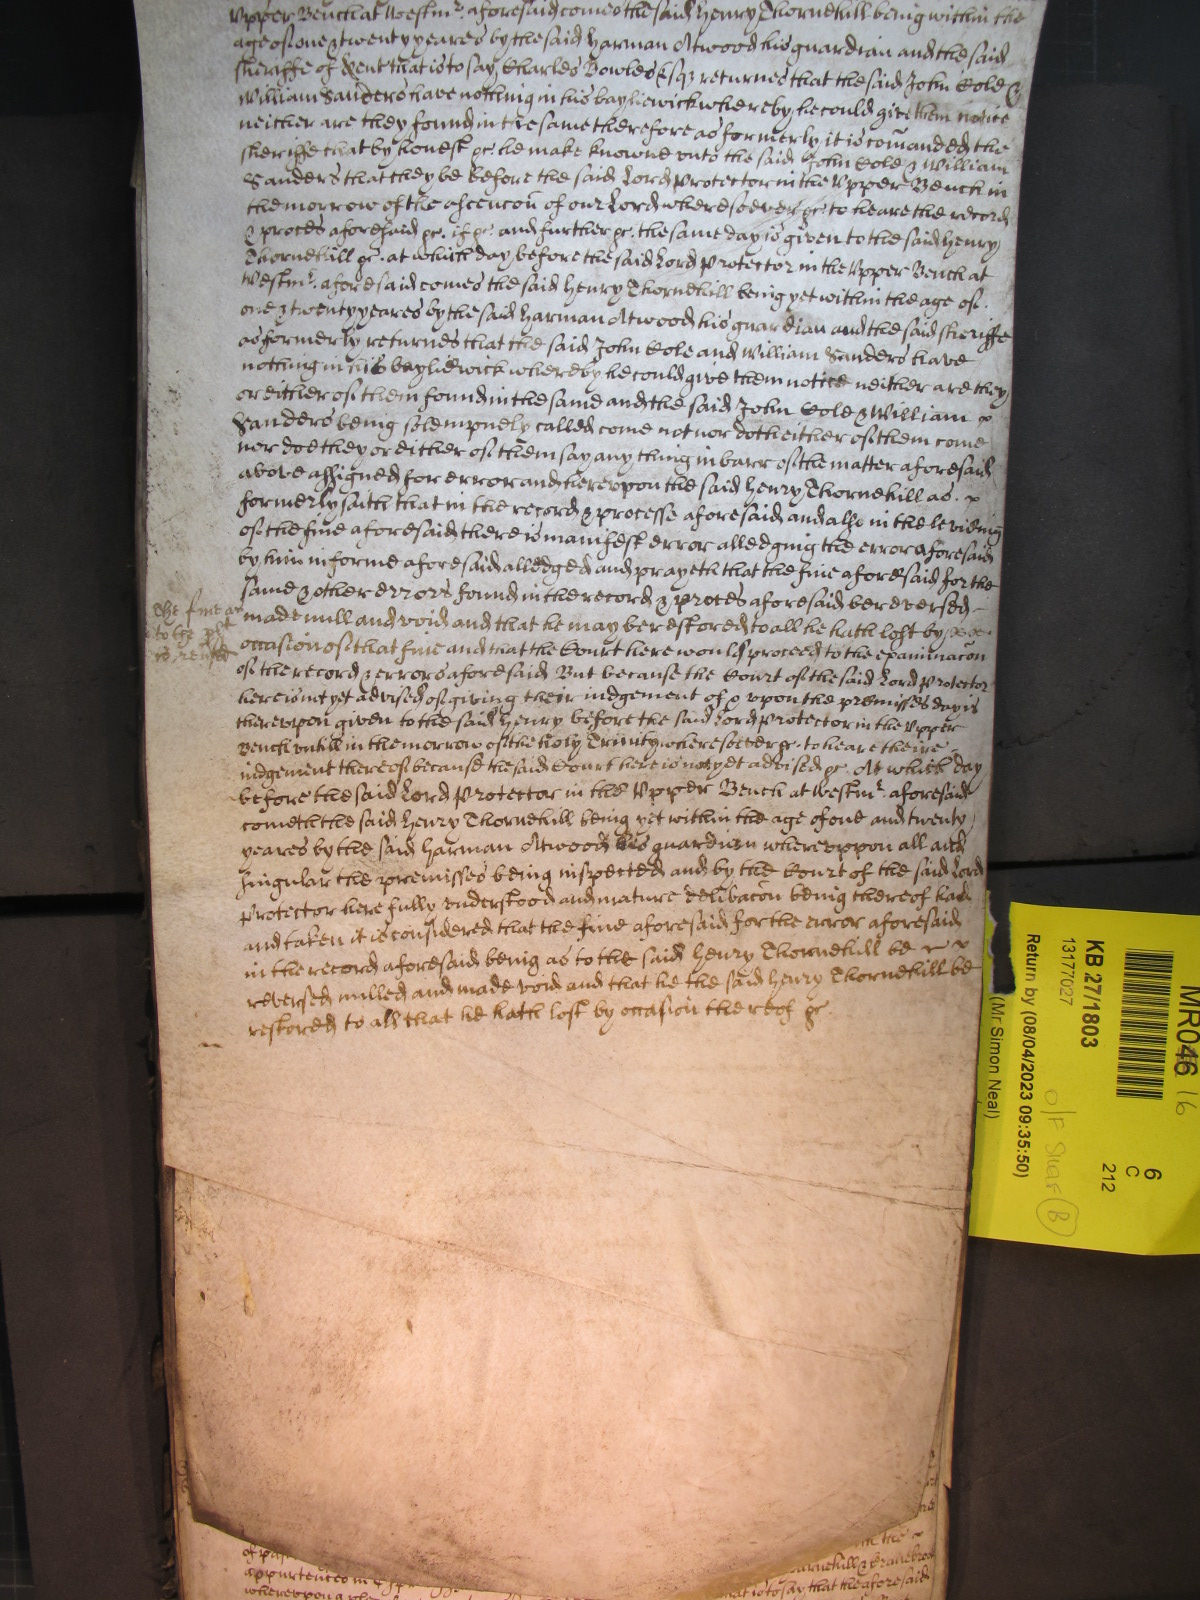 Upper Bench at Westmr. aforesaid comes the said Henry Thornehill being within the
age of one & twenty yeares by the said Harman Atwood his guardian and the said
sheriffe of Kent that is to say Charles Bowles Esqr returnes that the said John Cole &
William Sanders have nothing in his bayliewick whereby he could give them notice
neither are they found in the same therefore as formerly it is comanded the
sheriffe that by honest &c. he make knowne unto the said John Cole & William
Sanders that they be before the said Lord Protector in the Upper Bench in
the morrow of the ascencon of our Lord wheresoever &c. to heare the record
& proces aforesaid &c. if &c. and further &c. the same day is given to the said Henry
Thornehill &c. at which day before the said Lord Protector in the Upper Bench at
Westmr. aforesaid comes the said Henry Thornehill being yet within the age of
one & twenty yeares by the said Harman Atwood his guardian and the said sheriffe
as formerly returnes that the said John Cole and William Sanders have
nothing in his bayliewick whereby he could give them notice neither are they
or either of them found in the same and the said John Cole & William
Sanders being solempnely called come not nor doth either of them come
nor doe they or either of them say any thing in barr of the matter aforesaid
above assigned for error and thereupon the said Henry Thornehill as
formerly saith that in the record & processe aforesaid and alsoe in the levieing
of the fine aforesaid there is manifest error alledging the error aforesaid
by him in forme aforesaid alledged and prayeth that the fine aforesaid for the
same & other errors found in the record & proces aforesaid be reversed
The fine as
to the pt
is reversed
made null and void and that he may be restored to all he hath lost by
occasion of that fine and that the Court here would proceed to the examinacon
of the record & errors aforesaid But because the Court of the said Lord Protector
here is not yet advised of giving their iudgement of & upon the premisses day is
thereupon given to the said Henry before the said Lord Protector in the Upper
Bench untill in the morrow of the Holy Trinity wheresoever &c. to heare theire
iudgement thereof because the said Court here is not yet advised &c. At which day
before the said Lord Protector in the Upper Bench at Westmr. aforesaid
cometh the said Henry Thornehill being yet within the age of one and twenty
yeares by the said Harman Atwood his guardian whereuppon all and
singular the premisses being inspected and by the Court of the said Lord
Protector here fully understood and mature delibacon being thereof had
and taken it is considered that the fine aforesaid for the error aforesaid
in the record aforesaid being as to the said Henry Thornehill be
reversed nulled and made void and that he the said Henry Thornehill be
restored to all that he hath lost by occasion thereof &c.
MR046 16
6
C
212
KB 27/1803
13177027
Return by (08/04/2023 09:35:50)
(Mr Simon Neal)
O/P Shar B
of
appurtenc
whereupon
Thornehill &
that is to say that the aforesaid